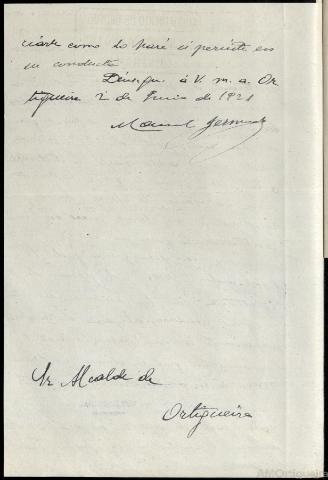 ciarle como lo haré si persiste en
su conducta
Dios gue. á V. m. a. Or
tigueira 2 de Junio de 1921
Manuel
Sr Alcalde de
Ortigueira
AMOrtigueira